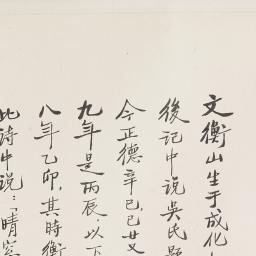 文衡山生于成化
後記中說吳氏題
今正德辛巳,已廿又
九年是丙辰,以下
八年乙卯,其時衡
此詩中説:「晴窓